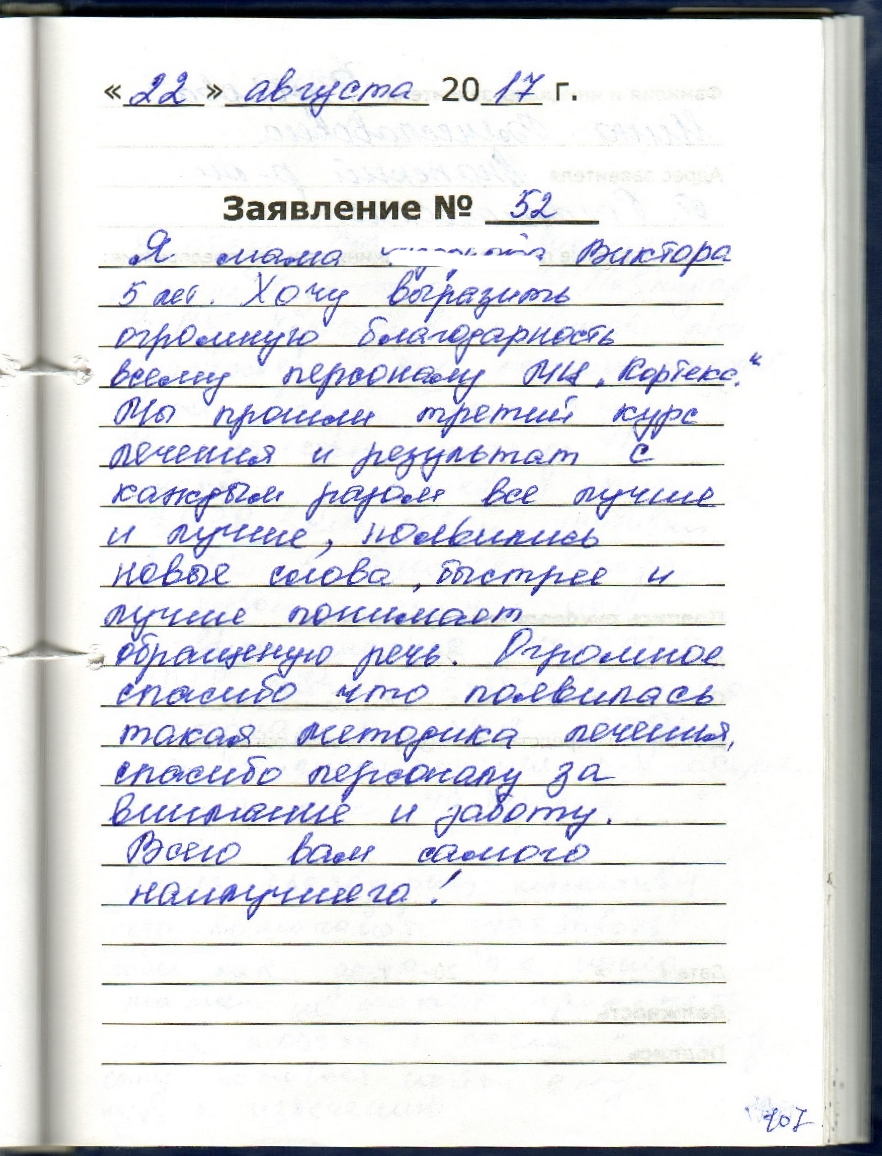 «22» августа 2017 г.
Заявление № 52
Я мама Виктора
5 лет. Хочу выразить
огромную благодарность
всему персоналу МЦ „Кортекс."
Мы прошли третий курс
лечения и результат с
каждым разом все лучше
и лучше, появились
новые слова, быстрее и
лучше понимает
обращеную речь. Огромное
спасибо что появилась
такая методика лечения,
спасибо персоналу за
внимание и заботу.
Всего вам самого
наилучшего!
107